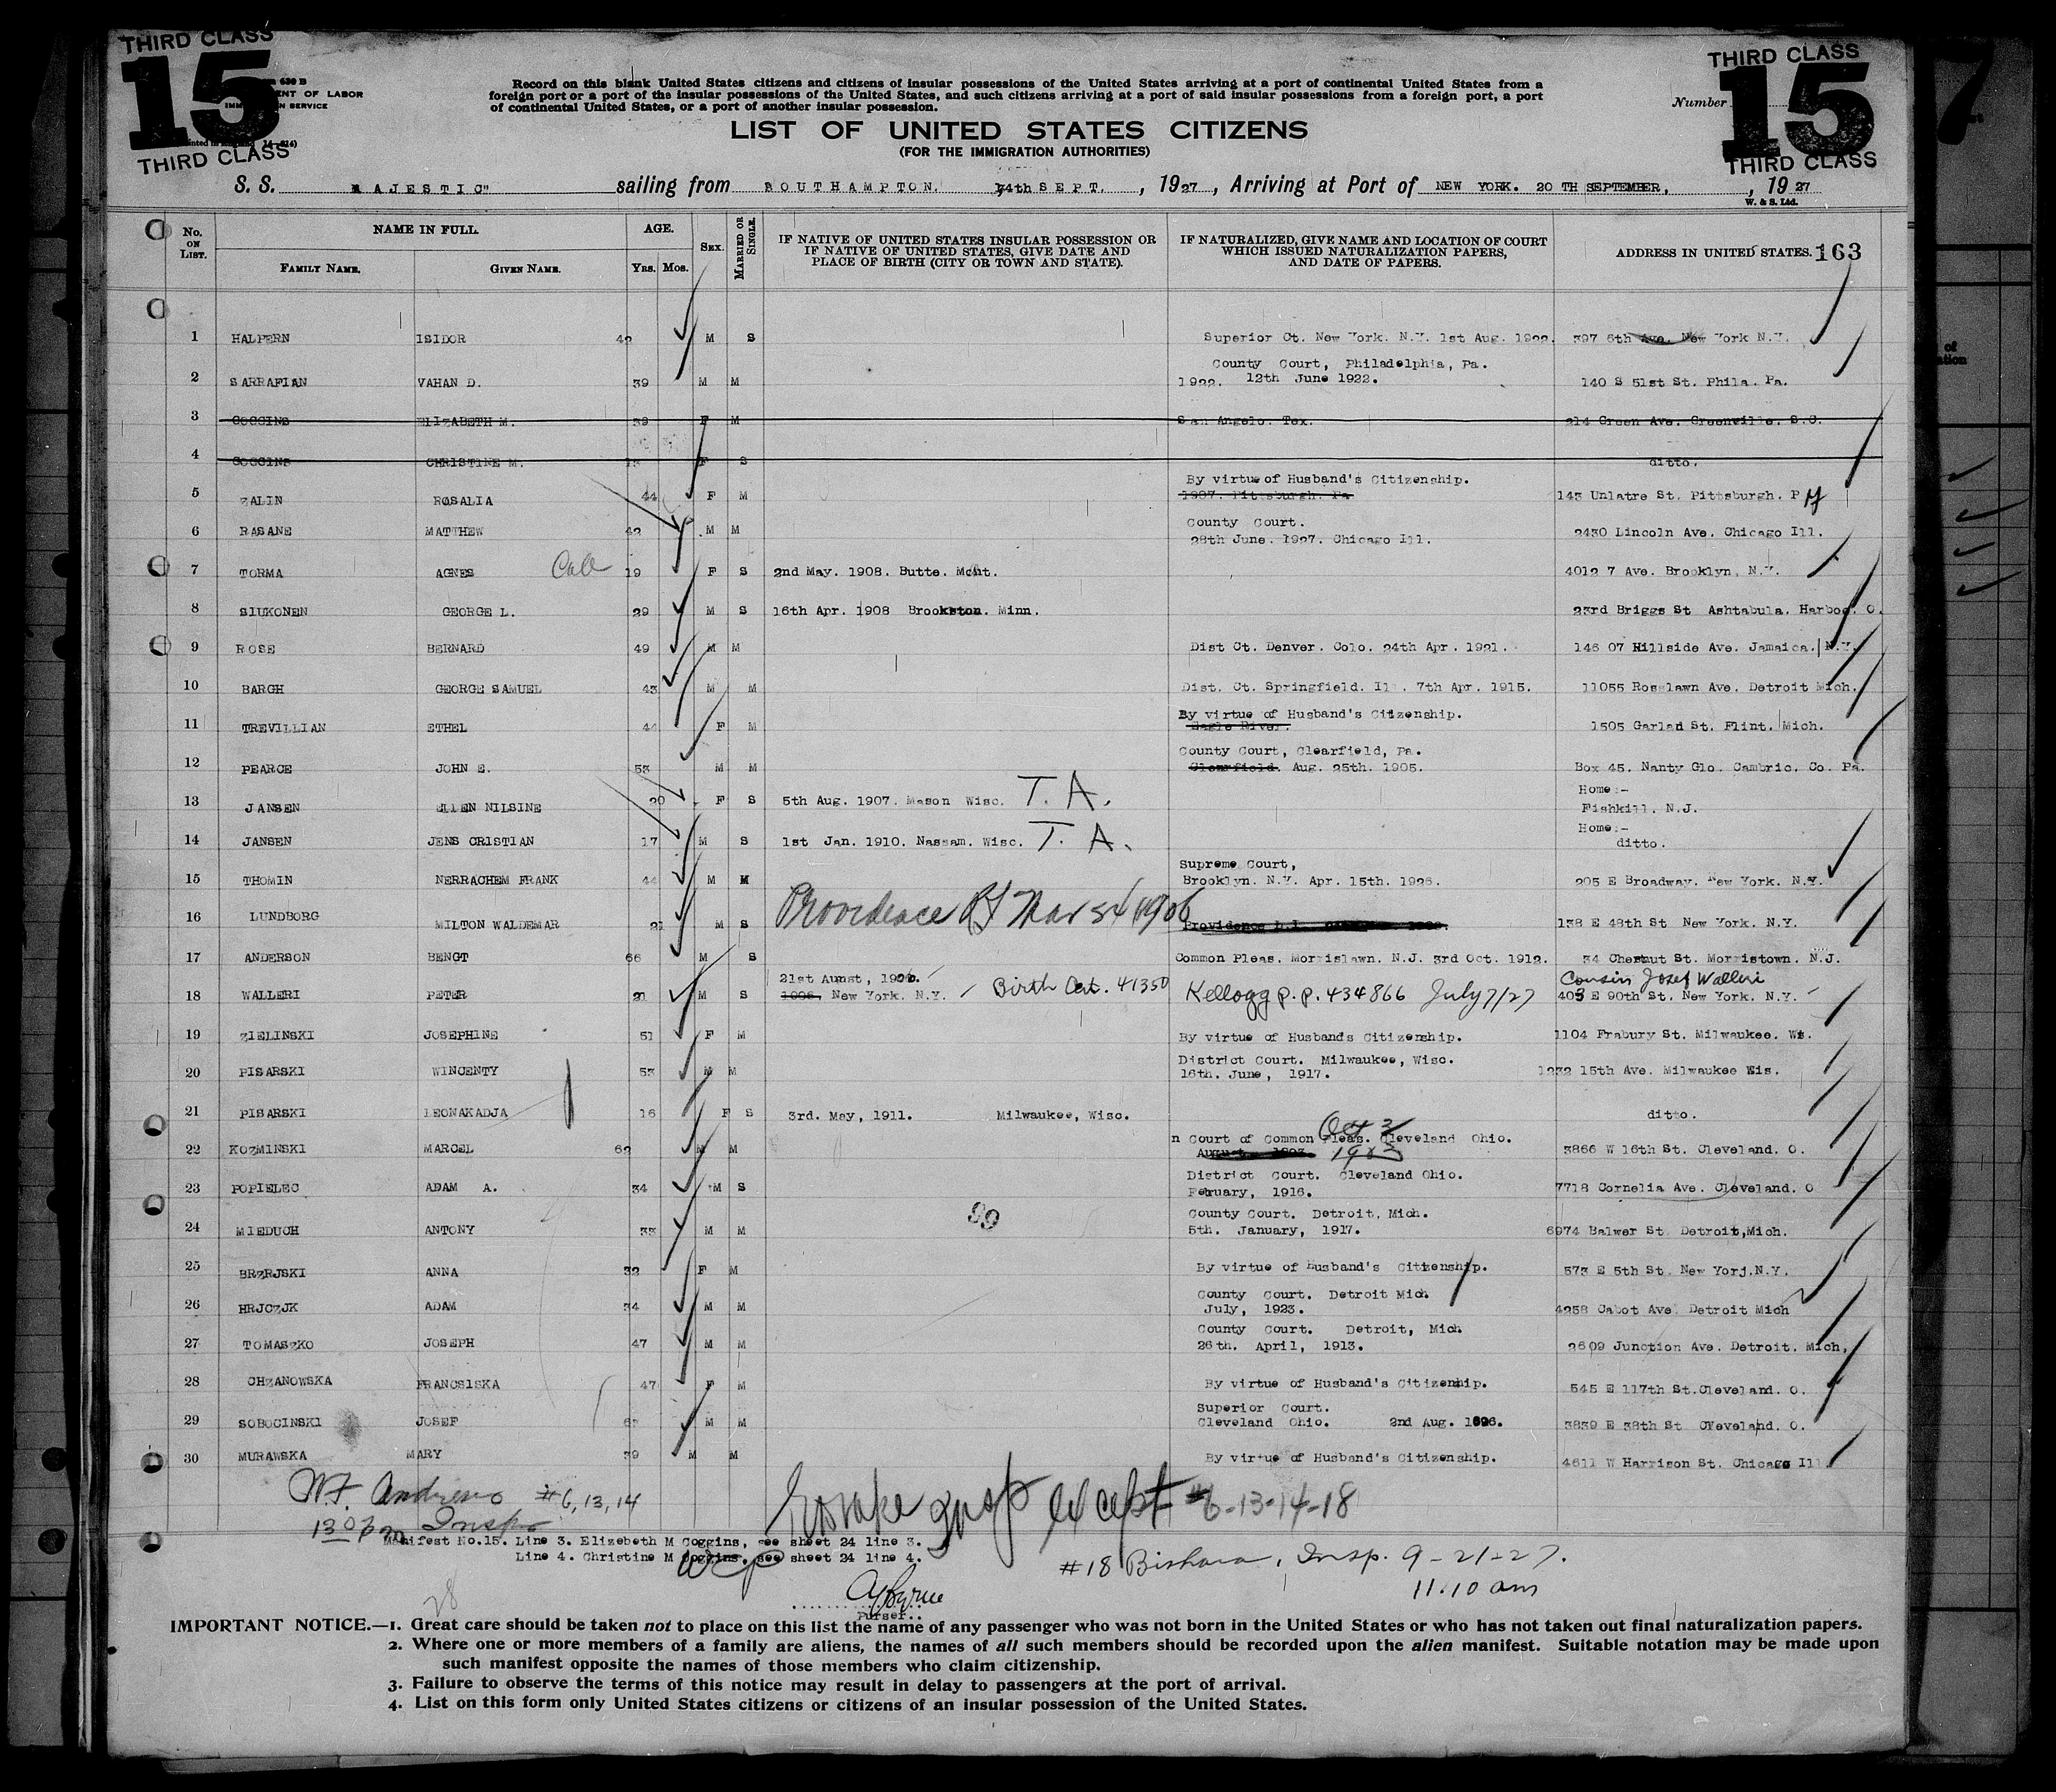 THIRD CLASS
15
THIRD CLASS
630 B
ENT OF LABOR
IMM N SERVICE
THIRD CLASS
Number
15
THIRD CLASS
Record on this blank United States citizens and citizens of insular possessions of the United States arriving at a port of continental United States from a
foreign port or a port of the insular possessions of the United States, and such citizens arriving at a port of said insular possessions from a foreign port, a port
of continental United States, or a port of another insular possession.
LIST OF UNITED STATES CITIZENS
(FOR THE IMMIGRATION AUTHORITIES)
S. S. MAJESTIC" sailing from SOUTHAMPTON. 14th SEPT. , 1927, Arriving at Port of NEW YORK. 20 TH SEPTEMBER, , 1927
W. & S. Ltd.
No. ON LIST. NAME IN FULL. FAMILY NAME. GIVEN NAME. AGE. YRS. MOS. SEX. MARRIED OR SINGLE.
IF NATIVE OF UNITED STATES INSULAR POSSESSION OR
IF NATIVE OF UNITED STATES, GIVE DATE AND
PLACE OF BIRTH (CITY OR TOWN AND STATE).
IF NATURALIZED, GIVE NAME AND LOCATION OF COURT
WHICH ISSUED NATURALIZATION PAPERS,
AND DATE OF PAPERS.
ADDRESS IN UNITED STATES. 163
1 HALPERN ISIDOR 42 M S Superior Ct. New York. N.Y. 1st Aug. 1922. 397 6th Ave. New York N.Y.
County Court, Philadelphia, Pa.
2 SARRAFIAN VAHAN D. 39 M M 1922. 12th June 1922. 140 S 51st St. Phila. Pa.
3 COGGINS ELIZABETH M. 39 F M San Angelo. Tex. 214 Green Ave. Greenville. S.C.
4 COGGINS CHRISTINE M. F S ditto.
By virtue of Husband's Citizenship.
5 ZALIN ROSALIA 44 F M 1907. Pittsburgh. Pa 143 Unlatre St. Pittsburgh. P
County Court.
6 RASANE MATTHEW 42 M M 28th June. 1927. Chicago Ill. 2430 Lincoln Ave. Chicago Ill.
7 TORMA AGNES 19 F S 2nd May. 1908. Butte. Mont. 4012 7 Ave. Brooklyn. N.Y.
8 SIUKONEN GEORGE L. 29 M S 16th Apr. 1908 Brookston. Minn. 23rd Briggs St Ashtabula. Harbor. O.
9 ROSE BERNARD 49 M M Dist Ct. Denver. Colo. 24th Apr. 1921. 146 07 Hillside Ave. Jamaica. N.Y.
10 BARGH GEORGE SAMUEL 43 M M Dist. Ct. Springfield. Ill. 7th Apr. 1915. 11055 Roslawn Ave. Detroit Mich.
By virtue of Husband's Citizenship.
11 TREVILLIAN ETHEL 44 F M Eagle River. 1505 Garlad St. Flint. Mich.
County Court, Clearfield, Pa.
12 PEARCE JOHN E. 53 M M Clearfield. Aug. 25th. 1905. Box 45. Nanty Glo. Cambric. Co. Pa.
Home:-
13 JANSEN ELLEN NILSINE 20 F S 5th Aug. 1907. Mason Wisc. T. A. Fishkill. N.J.
Home:-
14 JANSEN JENS CRISTIAN 17 M S 1st Jan. 1910. Nassam. Wisc. T. A. ditto.
Supreme Court,
15 THOMIN NERRACHEM FRANK 44 M M Brooklyn. N.Y. Apr. 15th. 1926. 205 E Broadway. New York. N.Y.
16 LUNDBORG MILTON WALDEMAR 21 M S Providence RI Mar 1906 Providence R.I. 138 E 48th St New York. N.Y.
17 ANDERSON BENGT 66 M S Common Pleas. Morrislawn. N.J. 3rd Oct. 1912. 34 Chestnut St. Morristown. N.J.
21st August, 1906. Cousin Josef Walleri
18 WALLERI PETER 21 M S 1906. New York. N.Y. Birth Cert. 41350 Kellogg p.p. 434866 July 7/27 403 E 90th St. New York. N.Y.
19 ZIELINSKI JOSEPHINE 51 F M By virtue of Husbands Citizenship. 1104 Frabury St. Milwaukee. Wis.
District Court. Milwaukee, Wisc.
20 PISARSKI WINCENTY 53 M M 16th. June, 1917. 1232 15th Ave. Milwaukee Wis.
21 PISARSKI LEONAKADJA 16 F S 3rd. May, 1911. Milwaukee, Wisc. ditto.
n Court of Common Pleas. Cleveland Ohio. Oct 3
22 KOZMINSKI MARCEL 62 M M August. 1903. 1903 3866 W 16th St. Cleveland. O.
District Court. Cleveland Ohio.
23 POPIELEC ADAM A. 34 M S Feruary, 1916. 7718 Cornelia Ave. Cleveland. O
County Court. Detroit, Mich.
24 MIEDUCH ANTONY 33 M M 5th. January, 1917. 6974 Balwer St. Detroit,Mich.
25 BRZRJSKI ANNA 32 F M By virtue of Husband's Citizenship. 573 E 5th St. New Yorj.N.Y.
County Court. Detroit Mich
26 HRJCZJK ADAM 34 M M July, 1923. 4258 Cabot Ave. Detroit Mich
County Court. Detroit, Mich
27 TOMASZKO JOSEPH 47 M M 26th. April, 1913. 2609 Junction Ave. Detroit. Mich,
28 CHZANOWSKA FRANCSISKA 47 F M By virtue of Husband's Citizenship. 545 E 117th St.Cleveland. O.
Superior Court.
29 SOBOCINSKI JOSEF M M Cleveland Ohio. 2nd Aug. 1896. 3839 E 38th St Cleveland. O.
30 MURAWSKA MARY 39 M M By virtue of Husband's Citizenship. 4611 W Harrison St. Chicago Ill.
W.F. Andrews #6, 13, 14
130 pm Insp.
Insp except #6-13-14-18
Manifest No.15. Line 3. Elizebeth M Coggins, see sheet 24 line 3.
Line 4. Christine M Coggins, see sheet 24 line 4.
#18 Bishara, Insp. 9-21-27.
11.10 am
28
Purser..
IMPORTANT NOTICE.—1. Great care should be taken not to place on this list the name of any passenger who was not born in the United States or who has not taken out final naturalization papers.
2. Where one or more members of a family are aliens, the names of all such members should be recorded upon the alien manifest. Suitable notation may be made upon
such manifest opposite the names of those members who claim citizenship.
3. Failure to observe the terms of this notice may result in delay to passengers at the port of arrival.
4. List on this form only United States citizens or citizens of an insular possession of the United States.